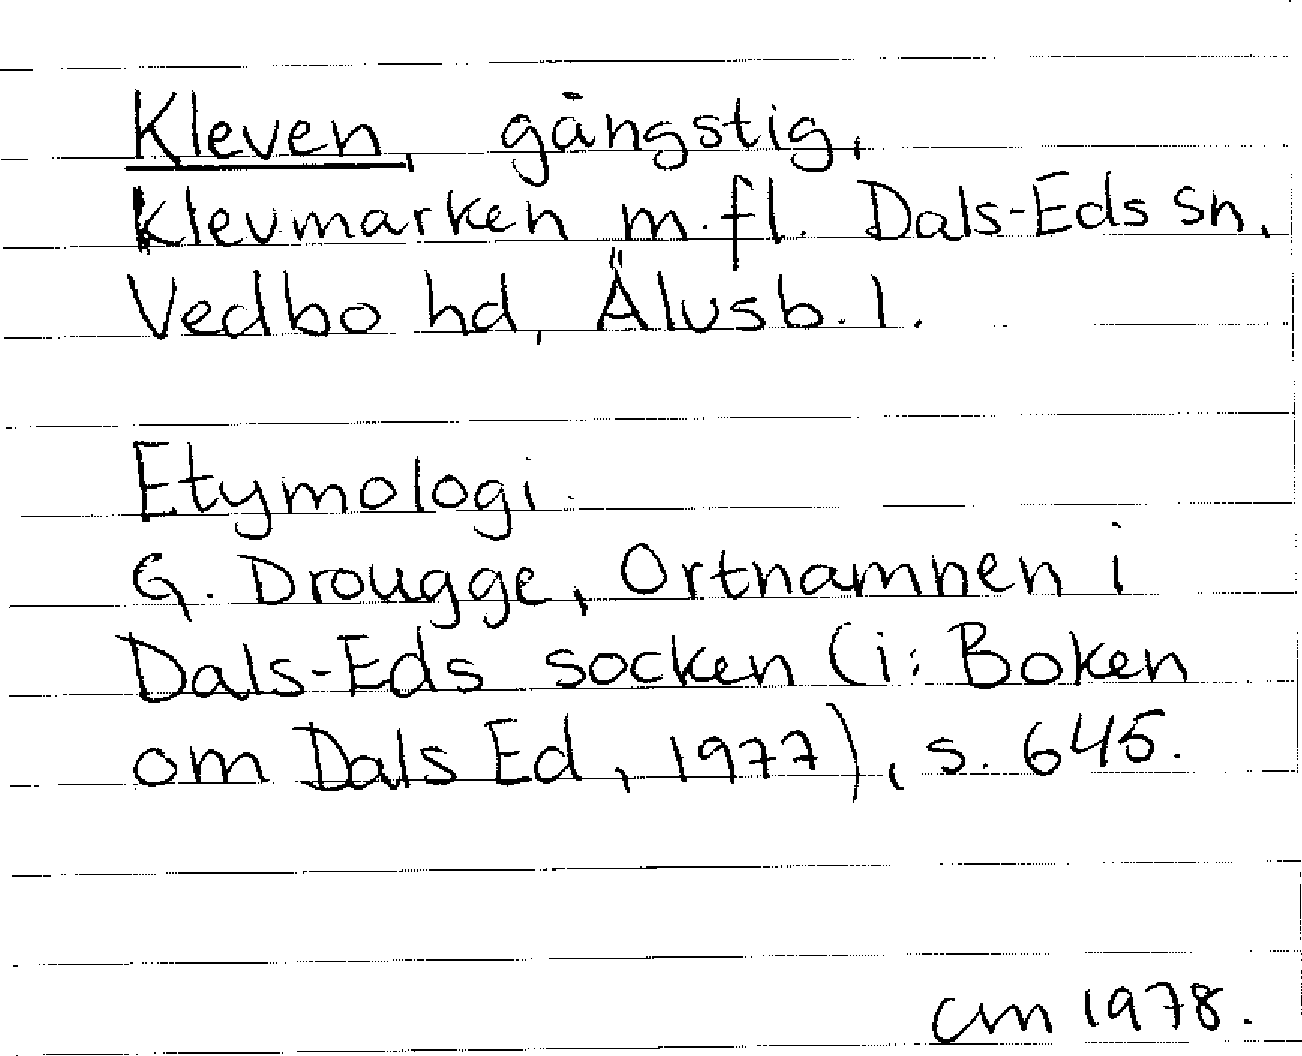 Kleven, gångstig,
Klevmarken m.fl. Dals-Eds sn,
Vedbo hd, Älvsb. l.
Etymologi
G. Drougge, Ortnamnen i
Dals-Eds socken (i: Boken
om Dals Ed, 1977), s. 645.
CM 1978.